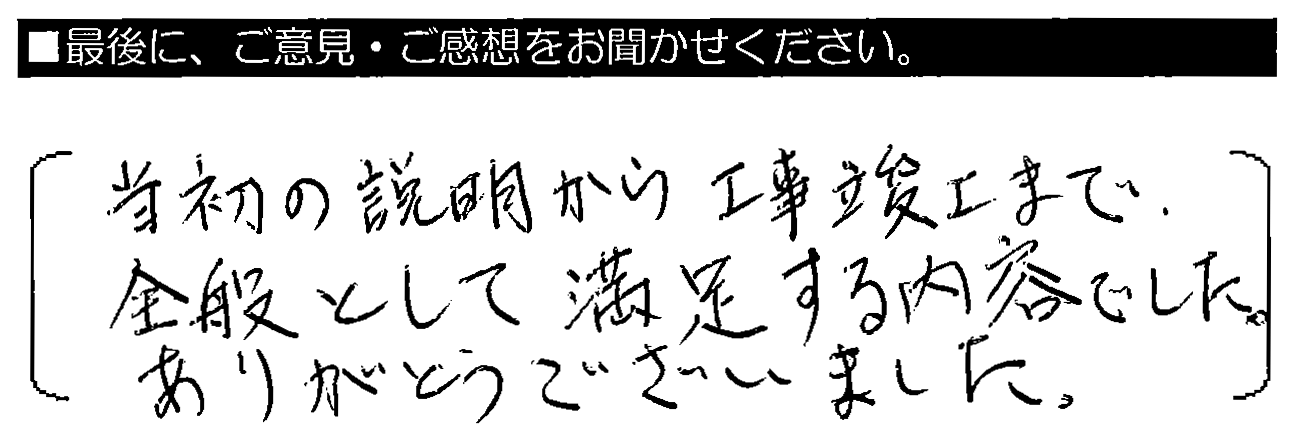 ■最後に、ご意見・ご感想をお聞かせください。
当初の説明から工事竣工まで、
全般として満足する内容でした。
ありがとうございました。